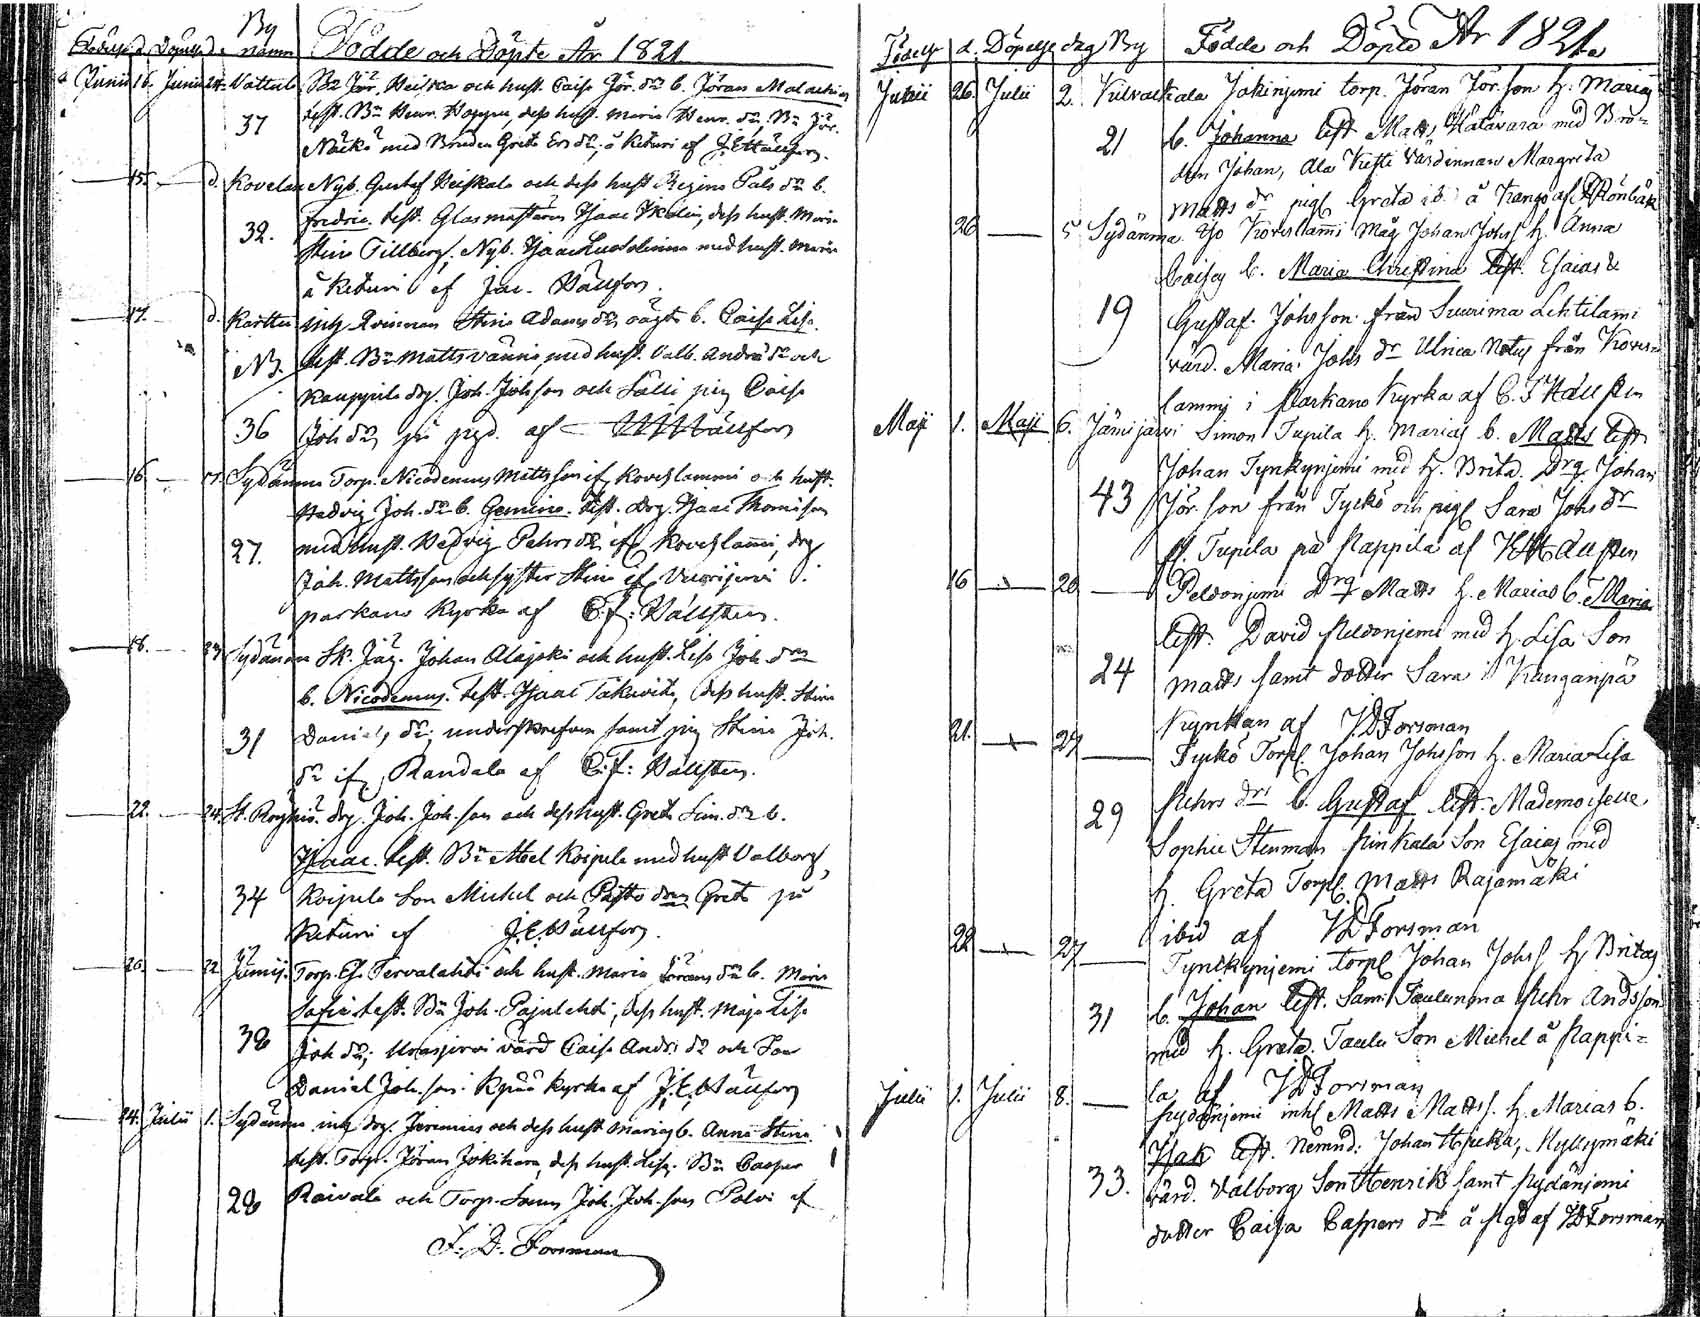 Födelse d. Döpelse d. By namn Födde och Döpte År 1821
Junii 16. Junii 24. Vattula Bn Jör. Heiska och hust. Caisa Jör. dr b. Jöran Malachias
test. Bn Henr. dess hust. Maria Henr. dr. Bn Jör.
37
med Bruden Greta Ers dr; å Keturi af J.E. Hällfors.
15. d. Kovelan Nyb. Gustaf Heiskala och dess hust Regina Påls dr b.
Fredric. test. Glasmästaren Isaac dess hust. Maria
32.
Stina Tillberg, Nyb. Isaac med hust. Maria
å Keturi af Jac. Hällfors.
17. d. Karttu inh. Qvinnan Stina Adams dr oägta b. Caisa Lisa.
N3. test. Bn Matts Vänni, med hust. Valb. Andrs dr och
Kauppila drg. Joh. Johsson och Sälli pig Caisa
36 Joh dr, på pgd. af Hällfors
16. 17. Sydänmaa Torp. Nicodemus Mattsson if. Koveslammi och hust.
Hedvig Joh. dr b. Gemina. test. drg. Isaac Thomsson
27. med hust. Hedvig Pehrs dr if. Koveslammi, drg
Joh. Mattsson och syster Stina if. Vuorijervi
Parkano Kyrka af C.J: Hällsten.
18. 23. Sydänm Sk. Jäg. Johan Alajoki och hust. Lisa Joh. dr
b. Nicodemus. test. Isaac dess hust. Stina
31 Daniels dr; samt pig Stina Joh.
dr if. Randala af C.J: Hällsten.
22. 24. St. Röyhiö. drg. Joh. Joh. son och dess hust. Greta Sim. dr b.
Isaac. test. Bn Abel Koipila med hust Valborg,
34 Koipila Son Michel och dren Greta på
Keturi af J.E. Hällfors.
20. 22. Jämij. Torp. Es. Tervalahti och hust. Maria Jörans dr b. Maria
Sofia test. Bn Joh. Pajulahti, dess hust. Maja Lisa
38 Joh dr; vård Caisa Andrs dr och Son
Daniel Joh. son. Kyrka af J.E. Hällfors
24. Julii 1. Sydänm inh. drg. Jeremias och dess hust Marias b. Anna Stina.
test. Torp. Jöran Jokiharu, dess hust. Lisa. Bn Casper
28 Raivala och Torp. Sonen Joh. Joh. son Polvi af
J. D. Forsman
Födelse d. Döpelse dag By Födde och Döpte År 1821.
Junii 26. Julii 2. Vilvalkala Jokinjemi torp. Jöran Jör.son h. Marias
21 b. Johanna test Matts Hatavara med Bro=
den Johan, Ala Kesti Värdinnan Margreta
Matts dr pigl. Greta ib. å Kangas af Rönbäk
26 5 Sydänma Koveslammi Måg Johan Johs s h. Anna
Caisas b. Maria Christina test. Esaias &
19 Gustaf. Johsson från Suurima Lehtilami
vård. Maria Johs dr Ulrica från Koves=
lammi i Parkano Kyrka af C. J Hällsten
Maji 1. Maji 6. Jämijärvi Simon Tupila h. Marias b. Matts test
Johan Tynkynjemi med h. Brita. Drg. Johan
43 Jör.son från Tyckö och pigl Sara Johs dr
fl. Tupila på Kappila af Hällsten
16 20 Peldonjemi Drg Matts h. Marias b. Maria
test. David Peldonjemi med h. Lisa Son
24 Matts samt dotter Sara i Kanganpä
Kyrckan af JDForsman
21. 27 Tyckö Torpl. Johan Johsson h. Maria Lisa
29 Pehrs drs b. Gustaf test. Mademoiselle
Sophie Stenman Pinkala Son Esaias med
h. Greta Torpl. Matts Rajamäki
ibid af JDForsman
22 27 Tynckynjemi torpl Johan Johs s h Britas
31 b. Johan test. Sami Taulunma Pehr Andsson
med h. Greta. Taulu Son Michel å Kappi=
la af JDForsman
Julii 1. Julii 8. Sydänjemi inhl Matts Matts s. h. Marias b.
Isak test. Nemnd: Johan Hpicka, Myllymäki
33. värd. Valborg Son Henrik samt Sydänjemi
dotter Caisa Caspers dr å Pgd af JDForsman